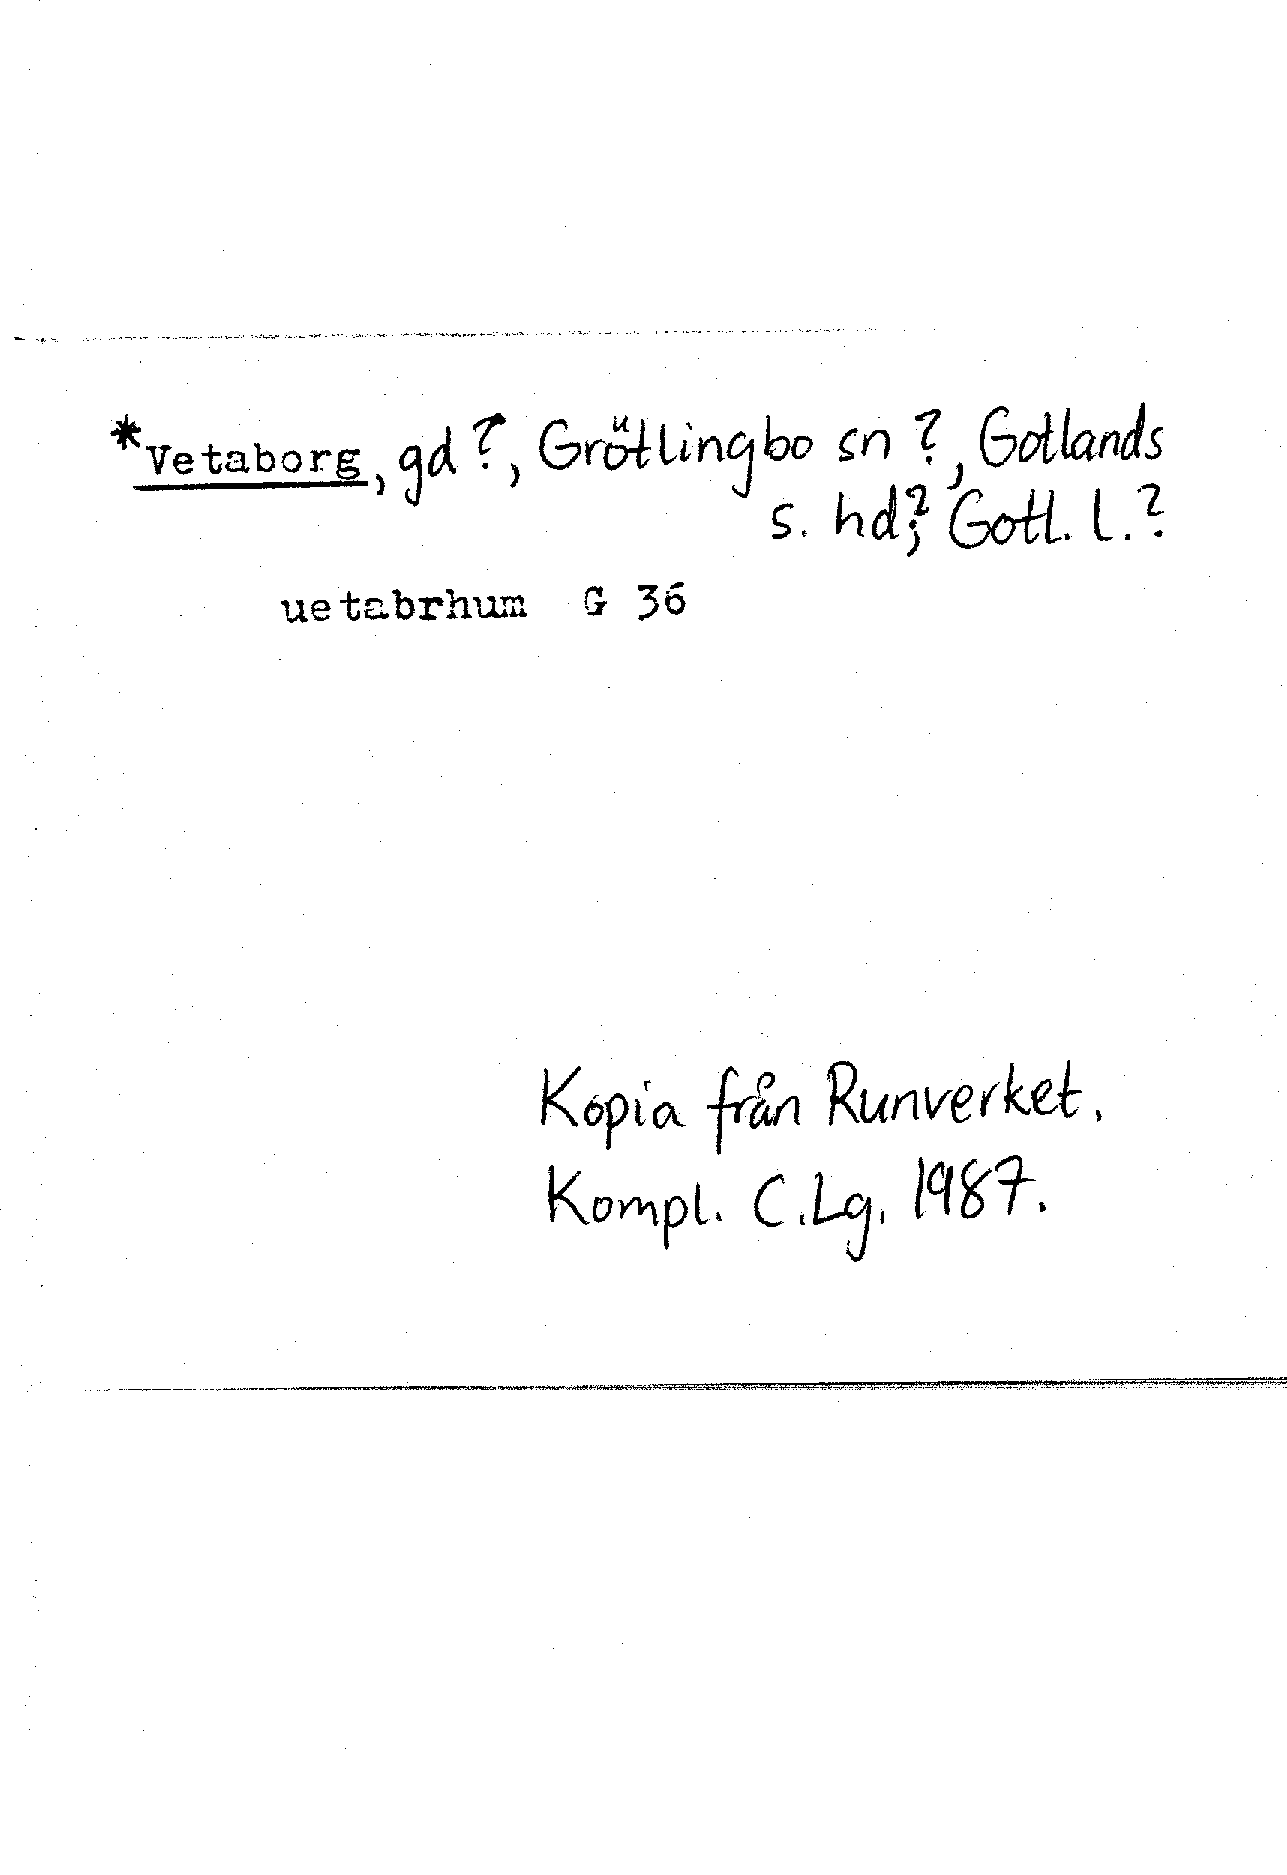 *Vetaborg, gd?, Grötlingbo sn?, Gotlands
s. hd?, Gotl. l.?
uetabrhum G 36
Kopia från Runverket.
Kompl. C.Lg. 1987.